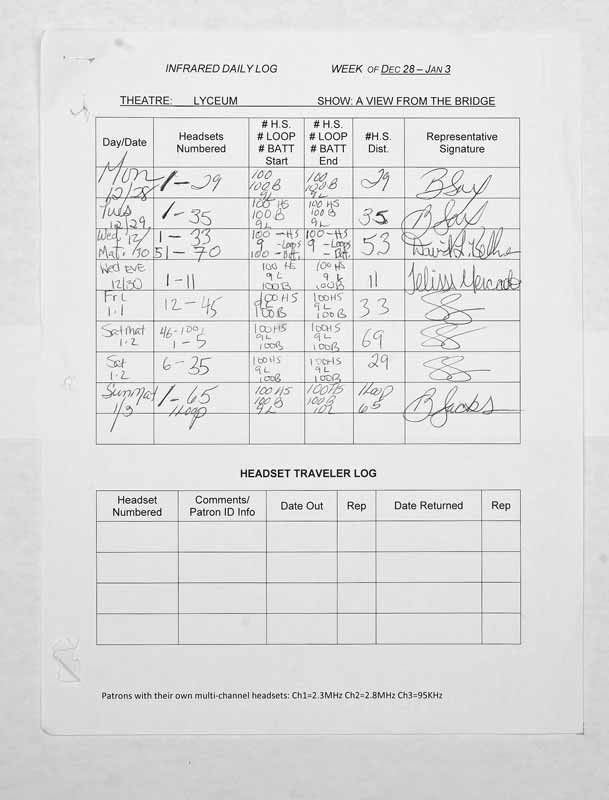 INFRARED DAILY LOG WEEK OF DEC 28 – JAN 3
THEATRE: LYCEUM SHOW: A VIEW FROM THE BRIDGE
Day/Date Headsets Numbered # H.S. # LOOP # BATT Start # H.S. # LOOP # BATT End #H.S. Dist. Representative Signature
Mon 12/28 1-29 100 100B 9L 100 100B 9L 29
Tues 12/29 1-35 100 HS 100B 9L 100 HS 100B 9L 35
Wed 12/30 Mat. 1-33 51-70 100-HS 9-Loops 100-Batt. 100-HS 9-Loops -Batt. 53
Wed EVE 12/30 1-11 100 HS 9L 100B 100 HS 9L 100B 11 Mercado
Fri 1.1 12-45 100HS 9L 100B 100HS 9L 100B 33
Sat mat 1.2 46-100, 1-5 100HS 9L 100B 100HS 9L 100B 69
Sat 1.2 6-35 100HS 9L 100B 100HS 9L 100B 29
Sun Mat 1/3 1-65 1 Loop 100 HS 100B 9L 100HS 100B 10L 1 Loop 65 B Jacobs
HEADSET TRAVELER LOG
Headset Numbered Comments/ Patron ID Info Date Out Rep Date Returned Rep
Patrons with their own multi-channel headsets: Ch1=2.3MHz Ch2=2.8MHz Ch3=95KHz